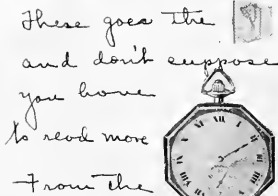 These goes the
and don't suppose
you have
to read more
From the